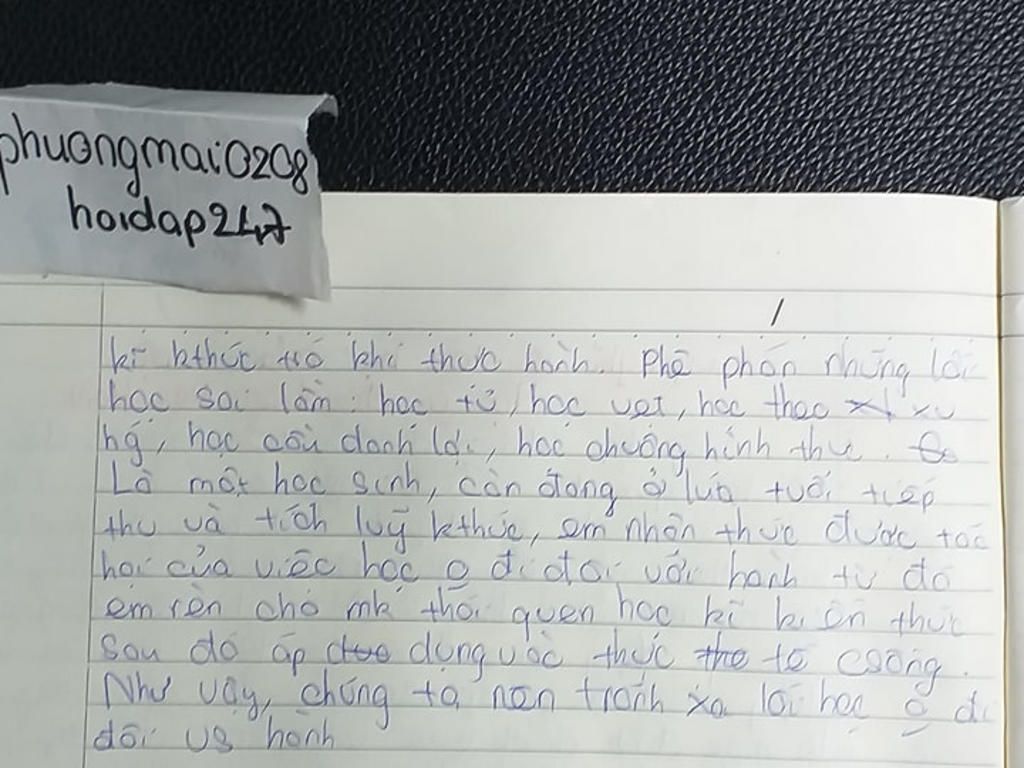 phuongmai0208
hoidap247
kĩ kthức trc khi thực hành. Phê phán những lối
học sai lầm: học tủ, học vẹt, học theo xu
hg', học cầu danh lợi, học chuộng hình thức.
Là một học sinh, còn đang ở lứa tuổi tiếp
thu và tích luỹ kthức, em nhận thức được tác
hại của việc học o đi đôi với hành từ đó
em rèn cho mk thói quen học kĩ kiến thức
sau đó áp dụng vào thực tế cuộc sống.
Như vậy, chúng ta nên tránh xa lối học o đi
đôi vs hành